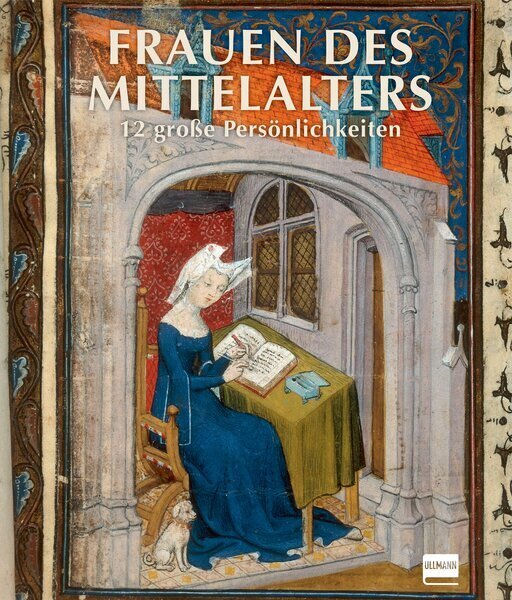 FRAUEN DES
MITTELALTERS
12 große Persönlichkeiten
ULLMANN